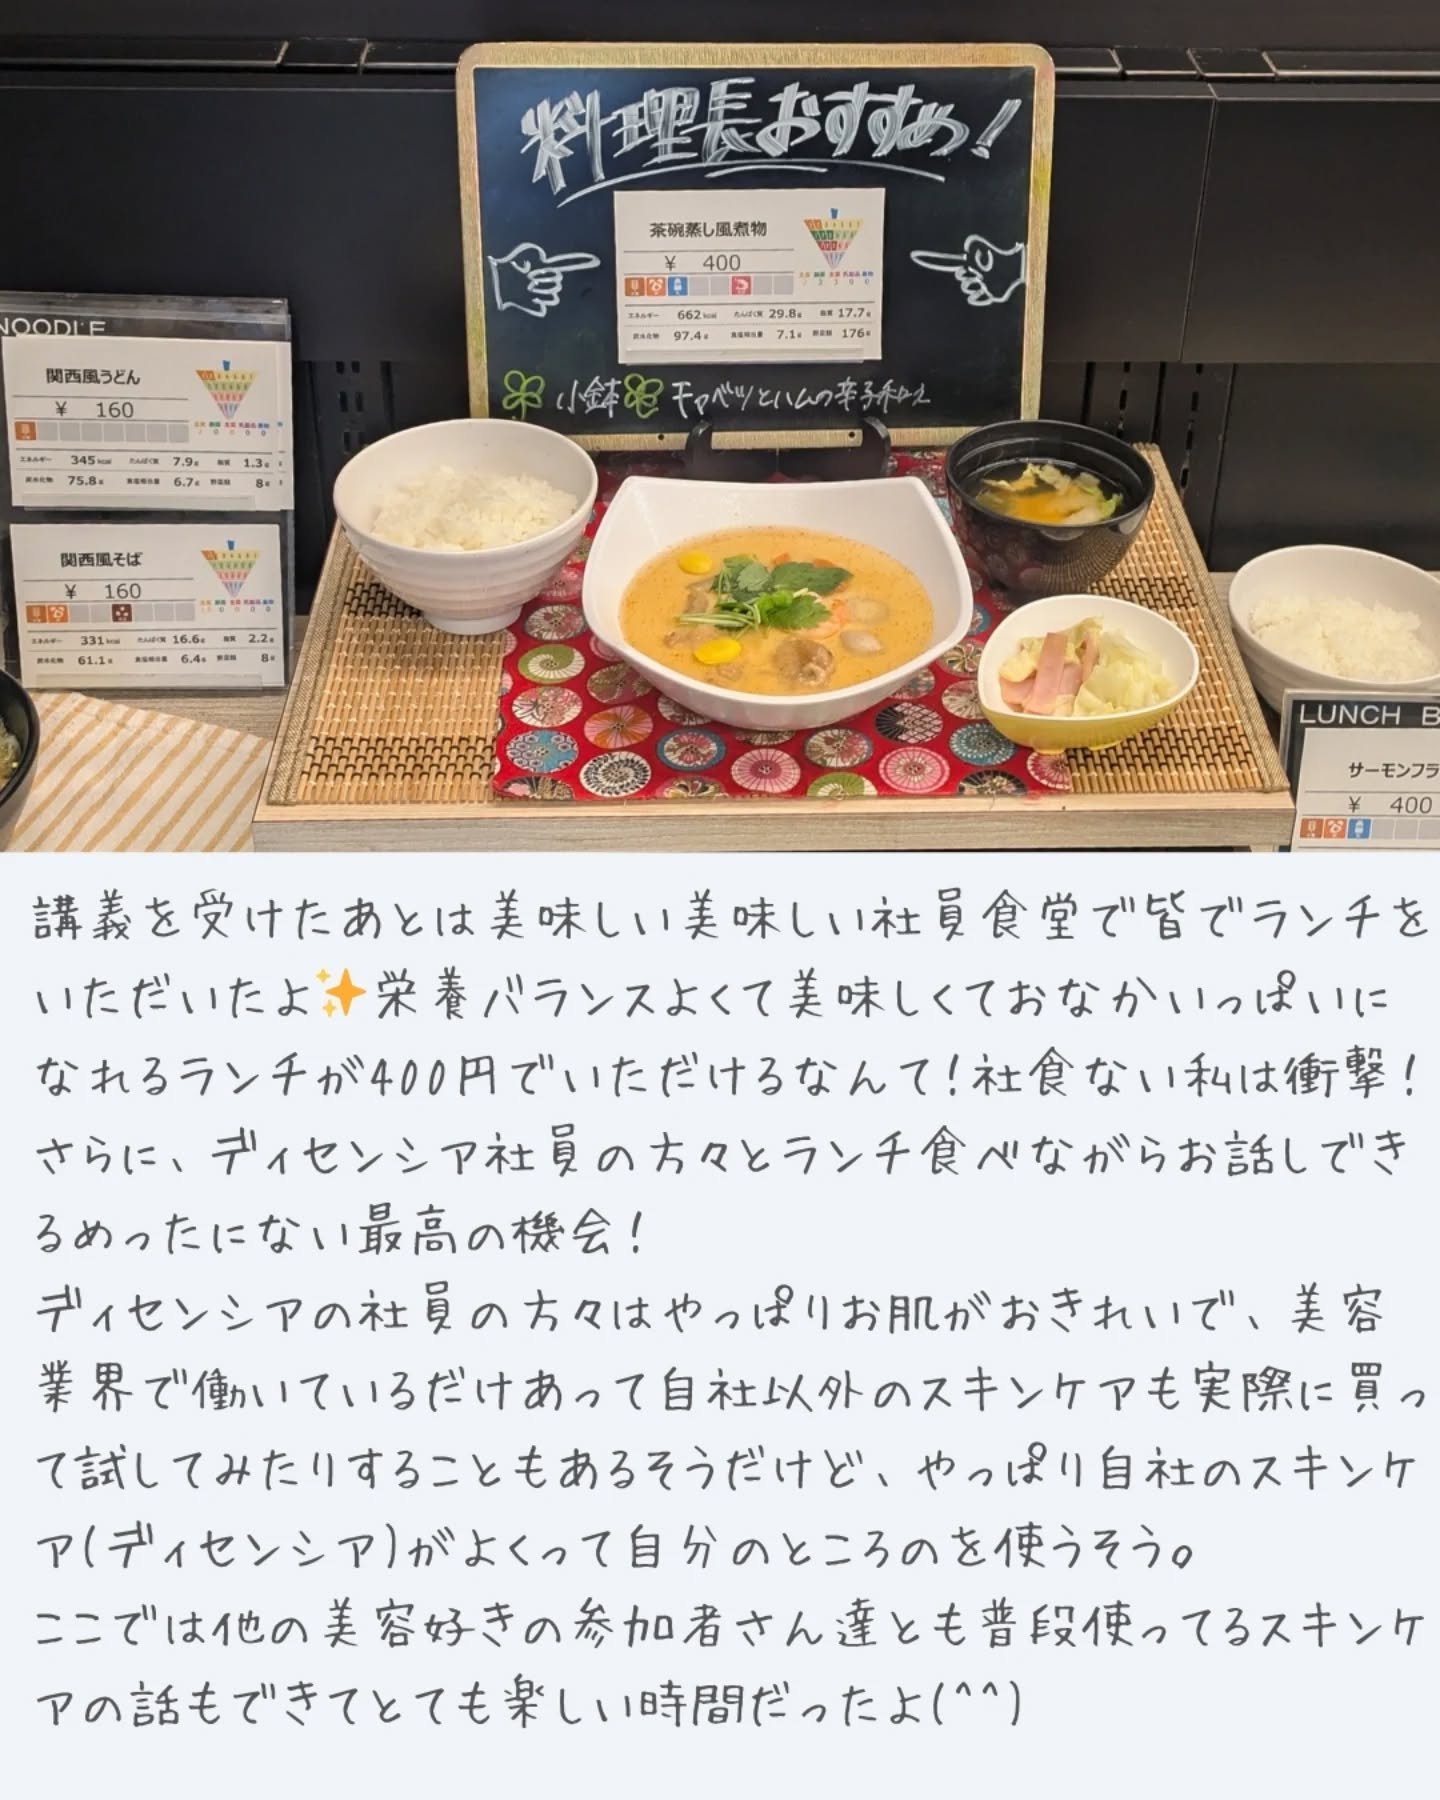 料理長おすすめ!
茶碗蒸し風煮物
¥ 400
エネルギー 662kcal たんぱく質 29.8g 脂質 17.7g
炭水化物 97.4g 食塩相当量 7.1g 野菜類 176g
小鉢 キャベツとハムの辛子和え
NOODLE
関西風うどん
¥ 160
エネルギー 345kcal たんぱく質 7.9g 脂質 1.3g
炭水化物 75.8g 食塩相当量 6.7g 野菜類 8g
関西風そば
¥ 160
エネルギー 331kcal たんぱく質 16.6g 脂質 2.2g
炭水化物 61.1g 食塩相当量 6.4g 野菜類 8g
LUNCH B
サーモンフラ
¥ 400
講義を受けたあとは美味しい美味しい社員食堂で皆でランチを
いただいたよ✨栄養バランスよくて美味しくておなかいっぱいに
なれるランチが400円でいただけるなんて!社食ない私は衝撃!
さらに、ディセンシア社員の方々とランチ食べながらお話しでき
るめったにない最高の機会!
ディセンシアの社員の方々はやっぱりお肌がおきれいで、美容
業界で働いているだけあって自社以外のスキンケアも実際に買っ
て試してみたりすることもあるそうだけど、やっぱり自社のスキンケ
ア(ディセンシア)がよくって自分のところのを使うそう。
ここでは他の美容好きの参加者さん達とも普段使ってるスキンケ
アの話もできてとても楽しい時間だったよ(^^)